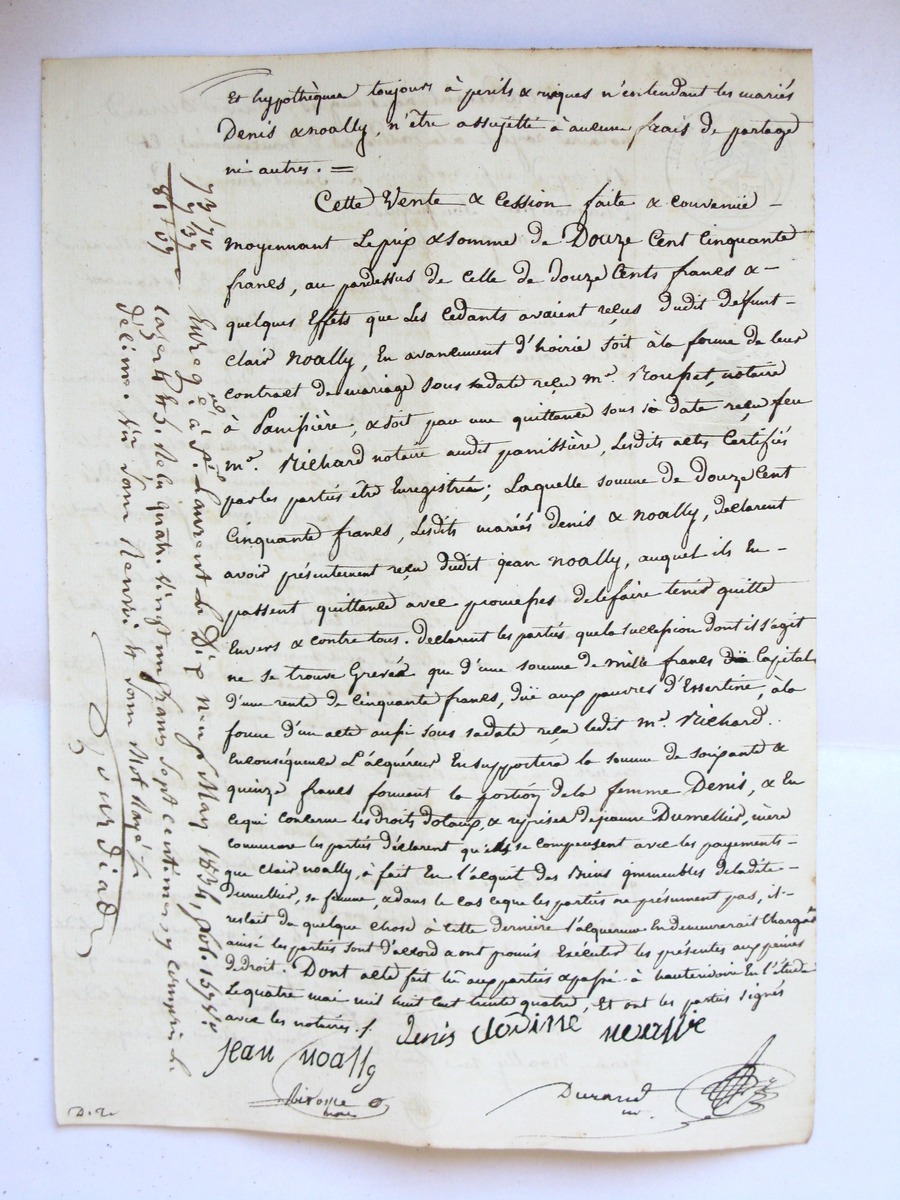 Et hypothèques toujours à perils & risques n'entendant les mariés
Denis & noally, n'être assujetté à aucune frais de partage
ni autres. =
Cette Vente & Cession faite & convenüe -
moyennant Le prix & somme de Douze Cent Cinquante
francs, au pardessus de celle de douze Cents francs & -
quelques Effets que Les Cedants avaient reçus dudit défunt -
clair Noally, En avancement d'hoirie soit à la forme de leur
contract de mariage sous sa date reçu me. Roupet, notaire
à Panissière, & soit par une quittance sous sa date reçu feu
me. Richard notaire audit panissière, Lesdits actes Certifiés
par les parties être Enregistrés; Laquelle somme de douze Cent
Cinquante francs, Lesdits mariés Denis & Noally, déclarent
avoir présentement reçu dudit jean Noally, auquel ils En -
passent quittance avec promesses de le faire tenir quitte
Envers & contre tous. Déclarent les parties que la succession dont il s'agit
ne se trouve Grevée que d'une somme de mille francs Capital
d'une rente de Cinquante francs, düe aux pauvres d'Essertine, à la
forme d'un acte aussi sous sa date reçu ledit me. Richard.
En conséquence L'acquéreur En supportera la somme de soixante &
quinze francs formant la portion de la femme Denis, & En
ce qui Concerne les droits dotaux, & reprises de jeanne Dumellier, mère
commune les parties déclarent qu'ils se compensent avec les payements -
que Clair noally, à fait En l'acquit des Biens immeubles de ladite -
Dumellier, sa femme, & dans le cas ce que les parties ne présument pas, il -
restait du quelque chose à Cette dernière l'acquéreur En demeurerait Chargé
ainsi les parties sont d'accord & ont promis Exécuter les présentes aux peines
de droit. Dont acte fait lu aux parties & passé à hauterivoire En l'étude
Le quatre mai mil huit Cent trente quatre, Et ont les parties signés
avec les notaires.
Denis Claudine noallie
jean noally
Durand
D. R.
73,70
7,37
81,07
Enregé. à St. Laurent le Dix neuf May 1834, fol. 159
Reçu quatre vingt un francs sept centimes y compris le
décime.